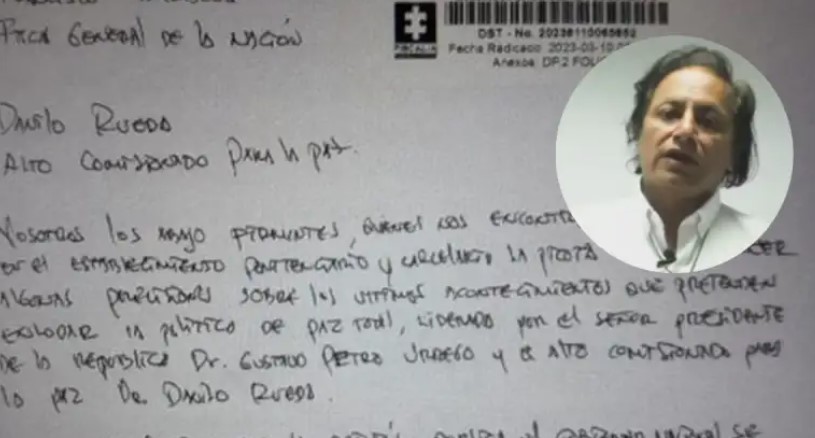 FISCAL GENERAL DE LA NACIÓN
FISCALIA
DST - No. 20236110065652
Fecha Radicado: 2023-03-10
Anexos: DP.2 FOL
DANILO RUEDA
ALTO COMISIONADO PARA LA PAZ.
NOSOTROS LOS ABAJO FIRMANTES, QUIENES NOS
EN EL ESTABLECIMIENTO PENITENCIARIO Y CARCELARIO LA PICOTA
ALGUNAS PRECISIONES SOBRE LOS ULTIMOS ACONTECIMIENTOS QUE PRETENDEN
LA POLITICA DE PAZ TOTAL, LIDERADO POR EL SEÑOR PRESIDENTE
DE LA REPUBLICA DR. GUSTAVO PETRO URREGO Y EL ALTO COMISIONADO PARA
LA PAZ DR DANILO RUEDA.